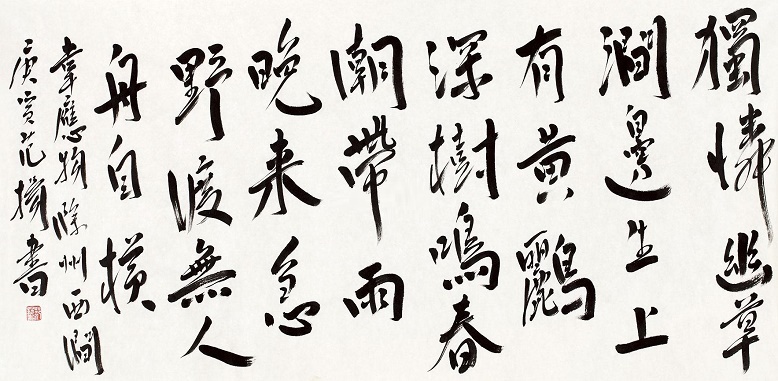 獨憐幽草
澗邊生上
有黃鸝
深樹鳴春
潮帶雨
晚来急
野渡無人
舟自橫
韋應物滁州西澗
庚寅范揚書